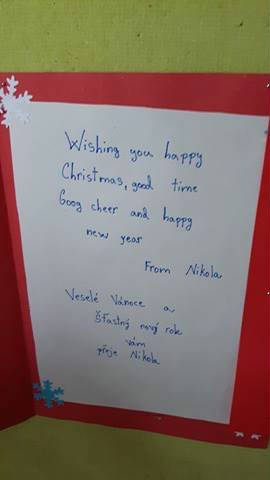 Wishing you happy
Christmas, good time
Goog cheer and happy
new year
From Nikola
Veselé Vánoce a
šťastný nový rok
vám
přeje Nikola